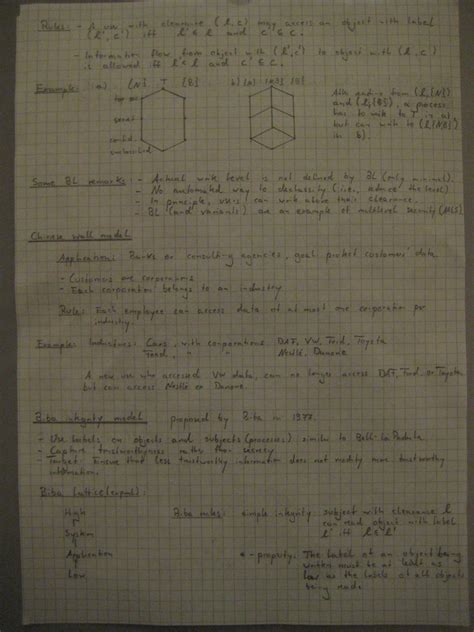 Rules: - A user with clearance (l, c) may access an object with label
(l', c') iff l' ≤ l and c' ⊆ c.
- Information flow from object with (l', c') to object with (l, c)
is allowed iff l' ≤ l and c' ⊆ c.
Example: a) {N} T {B} b) {N} {B}
top sec
secret
confid.
unclassified
After reading from (l, {N})
and (l, {B}), a process
has to write to T in a),
but can write to (l, {N,B})
in b).
Some BL remarks: - Actual write level is not defined by BL (only minimal).
- No automated way to declassify (i.e., reduce the level)
- In principle, users can write above their clearance.
- BL (and variants) are an example of multilevel security (MLS)
Chinese wall model:
Application: Banks or consulting agencies, goal: protect customers' data
- Customers are corporations
- Each corporation belongs to an industry
Rule: Each employee can access data of at most one corporation per
industry.
Example: Industries: Cars, with corporations DAF, VW, Ford, Toyota
Food, " " Nestlé, Danone
A new user who accessed VW data, can no longer access DAF, Ford, or Toyota
but can access Nestlé or Danone.
Biba integrity model: proposed by Biba in 1977.
- Use labels on objects and subjects (processes) similar to Bell-La Padula
- Capture trustworthiness rather than secrecy.
- Target: Ensure that less trustworthy information does not modify more trustworthy
information.
Biba lattice (expl.):
High
System
Application
Low
Biba rules: simple integrity: subject with clearance l
can read object with label
l' iff l ≤ l'
* - property: The label of an object being
written must be at least as
low as the labels of all objects
being read.